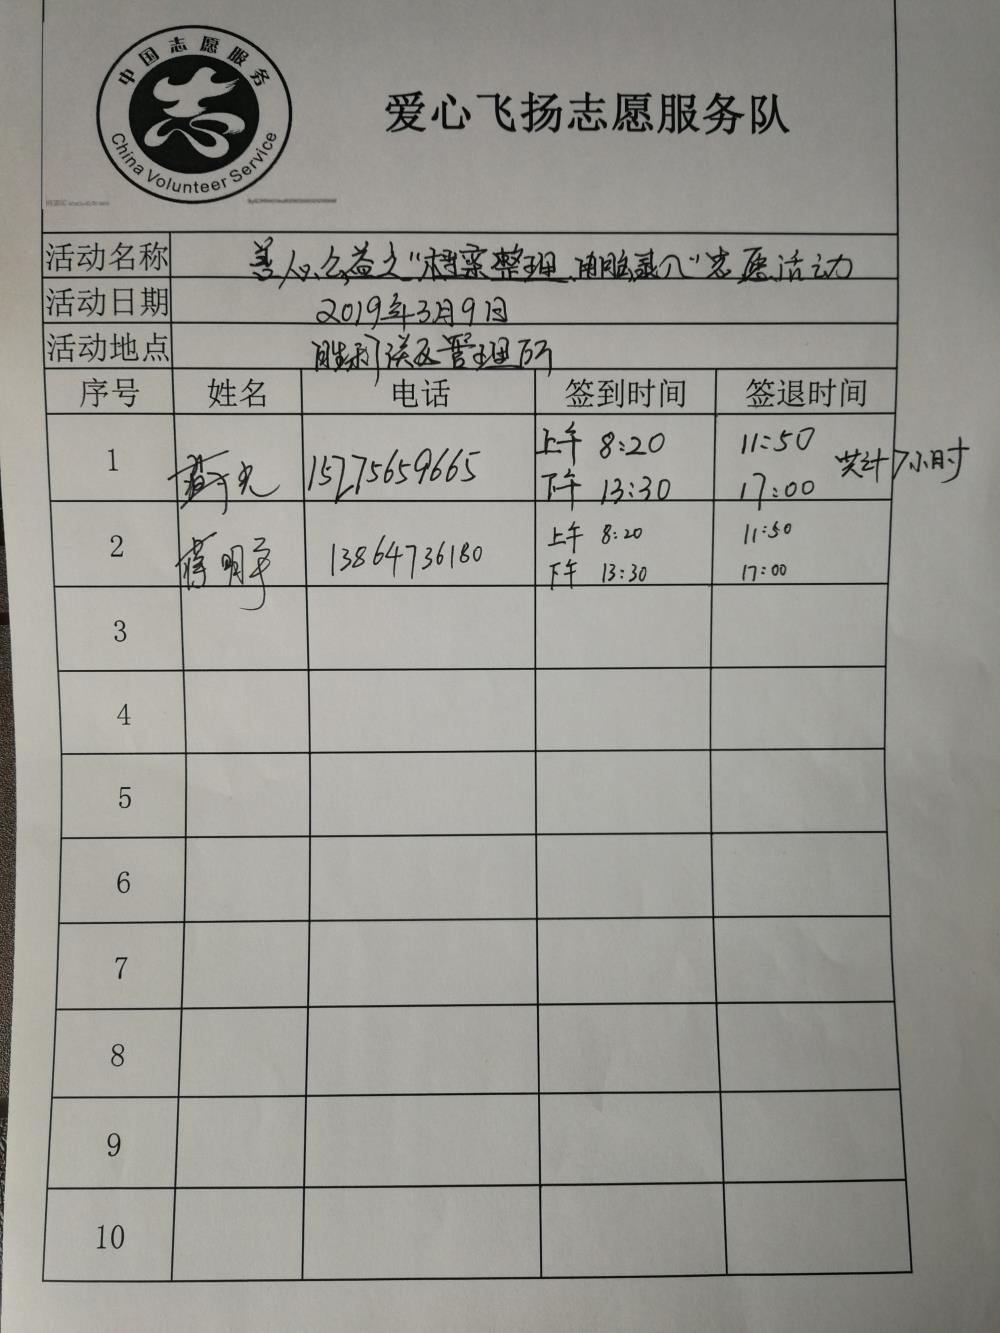 中国志愿服务
China Volunteer Service
爱心飞扬志愿服务队
活动名称 善心公益之“档案整理、电脑录入”志愿活动
活动日期 2019年3月9日
活动地点 胜利社区管理所
序号 姓名 电话 签到时间 签退时间
1 15275659665 上午 8:20 11:50 共计7小时
下午 13:30 17:00
2 蒋明 13864736180 上午 8:20 11:50
下午 13:30 17:00
3
4
5
6
7
8
9
10